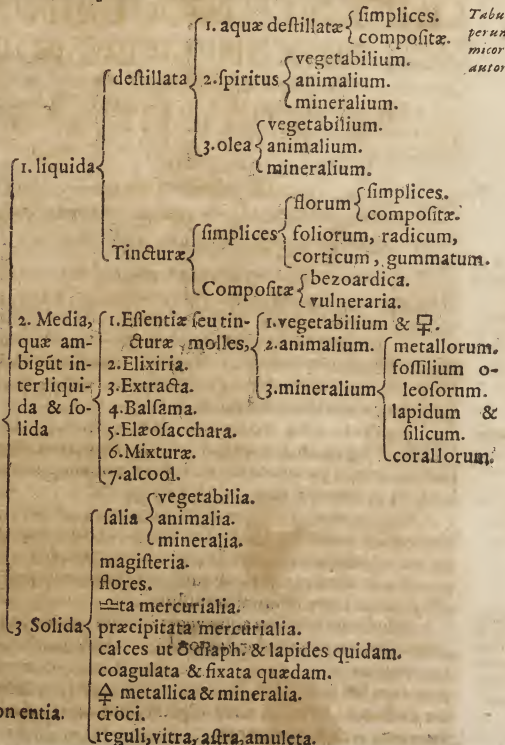 1. aquæ deſtillatæ ſimplices.
compoſitæ.
Tabu
perum
micor
autor
deſtillata
2. ſpiritus vegetabilium.
animalium.
mineralium.
3. olea vegetabilium.
animalium.
mineralium.
1. liquida
Tincturæ
ſimplices florum ſimplices.
compoſitæ.
foliorum, radicum,
corticum, gummatum.
Compoſitæ bezoardica.
vulneraria.
2. Media,
quæ am-
bigūt in-
ter liqui-
da & ſo-
lida
1. Eſſentiæ ſeu tin-
cturæ molles,
1. vegetabilium & 🜿.
2. animalium.
3. mineralium metallorum.
foſſilium o-
leoſorum.
lapidum &
ſilicum.
corallorum.
2. Elixiria.
3. Extracta.
4. Balſama.
5. Elæoſacchara.
6. Mixturæ.
7. alcool.
3 Solida
ſalia vegetabilia.
animalia.
mineralia.
magiſteria.
flores.
♎ta mercurialia.
præcipitata mercurialia.
calces ut diaph. & lapides quidam.
coagulata & fixata quædam.
🜍 metallica & mineralia.
croci.
reguli, vitra, aſtra, amuleta.
on entia.